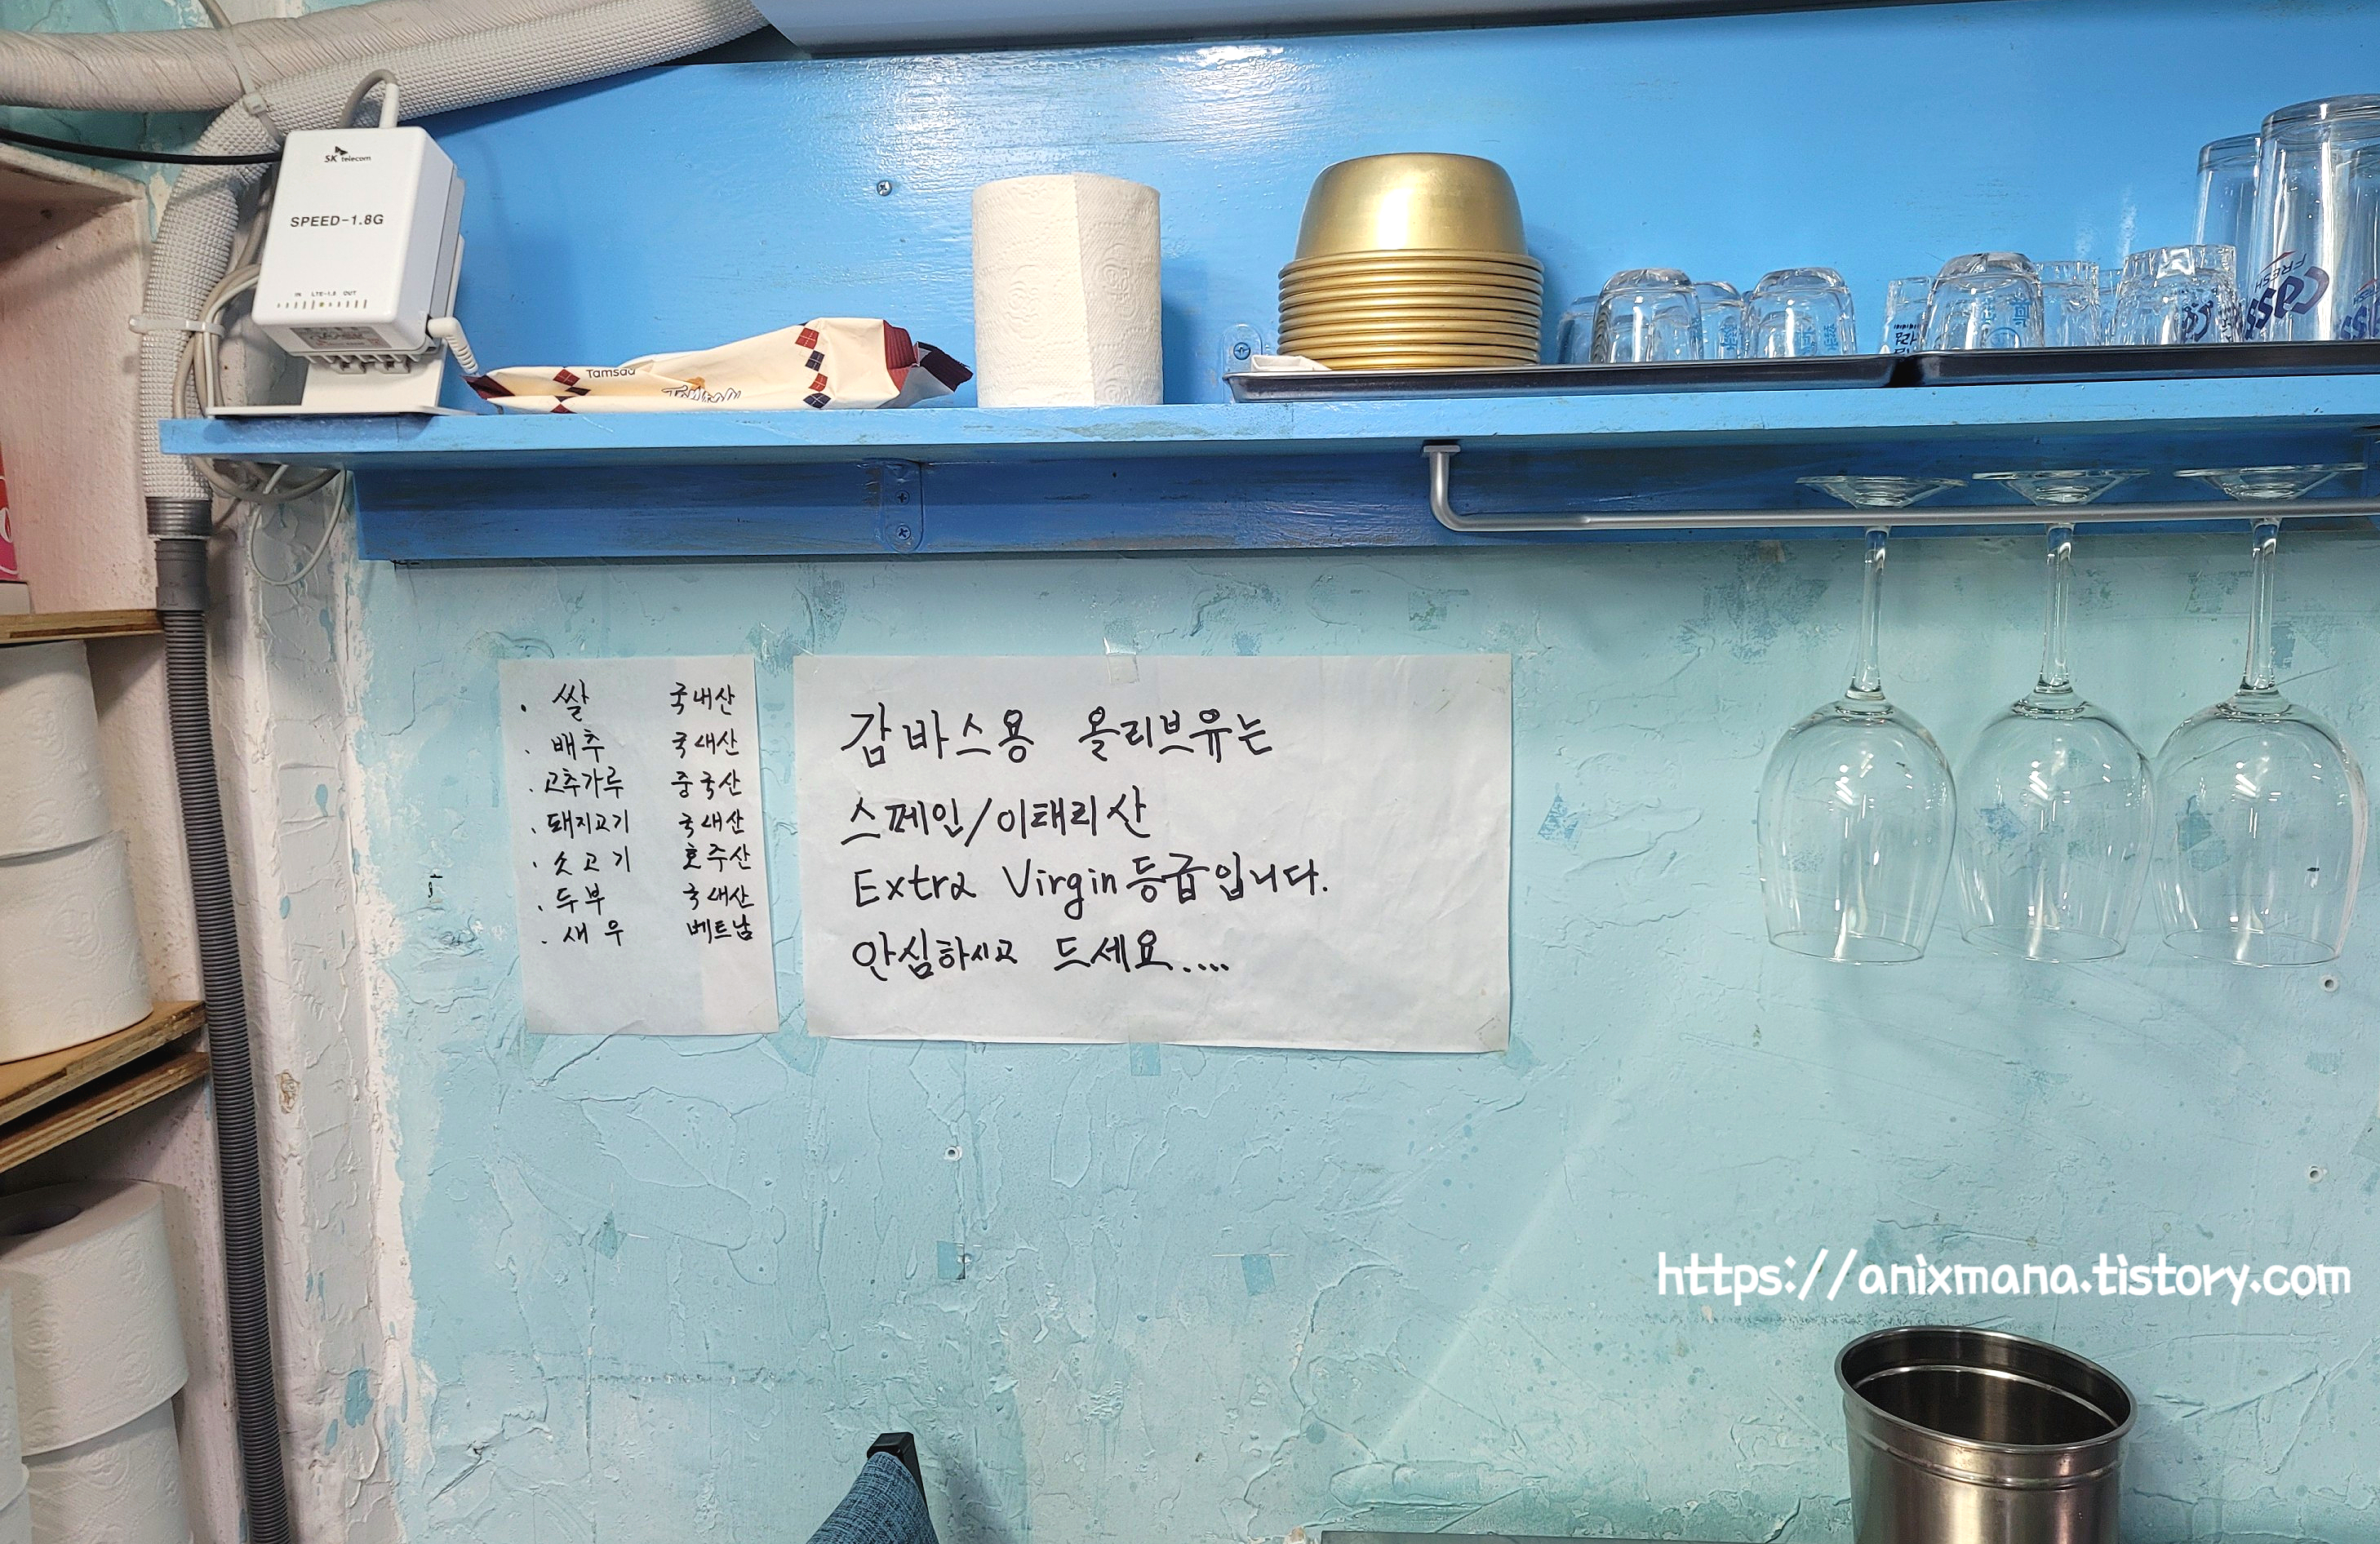 SK telecom
SPEED-1.8G
IN LTE-1.8 OUT
Tamsaa
FRESH
Cass
· 쌀 국내산
· 배추 국내산
· 고추가루 중국산
· 돼지고기 국내산
· 솟고기 호주산
· 두부 국내산
· 새우 베트남
감바스용 올리브유는
스페인/이태리산
Extra Virgin등급입니다.
안심하시고 드세요....
https://anixmana.tistory.com